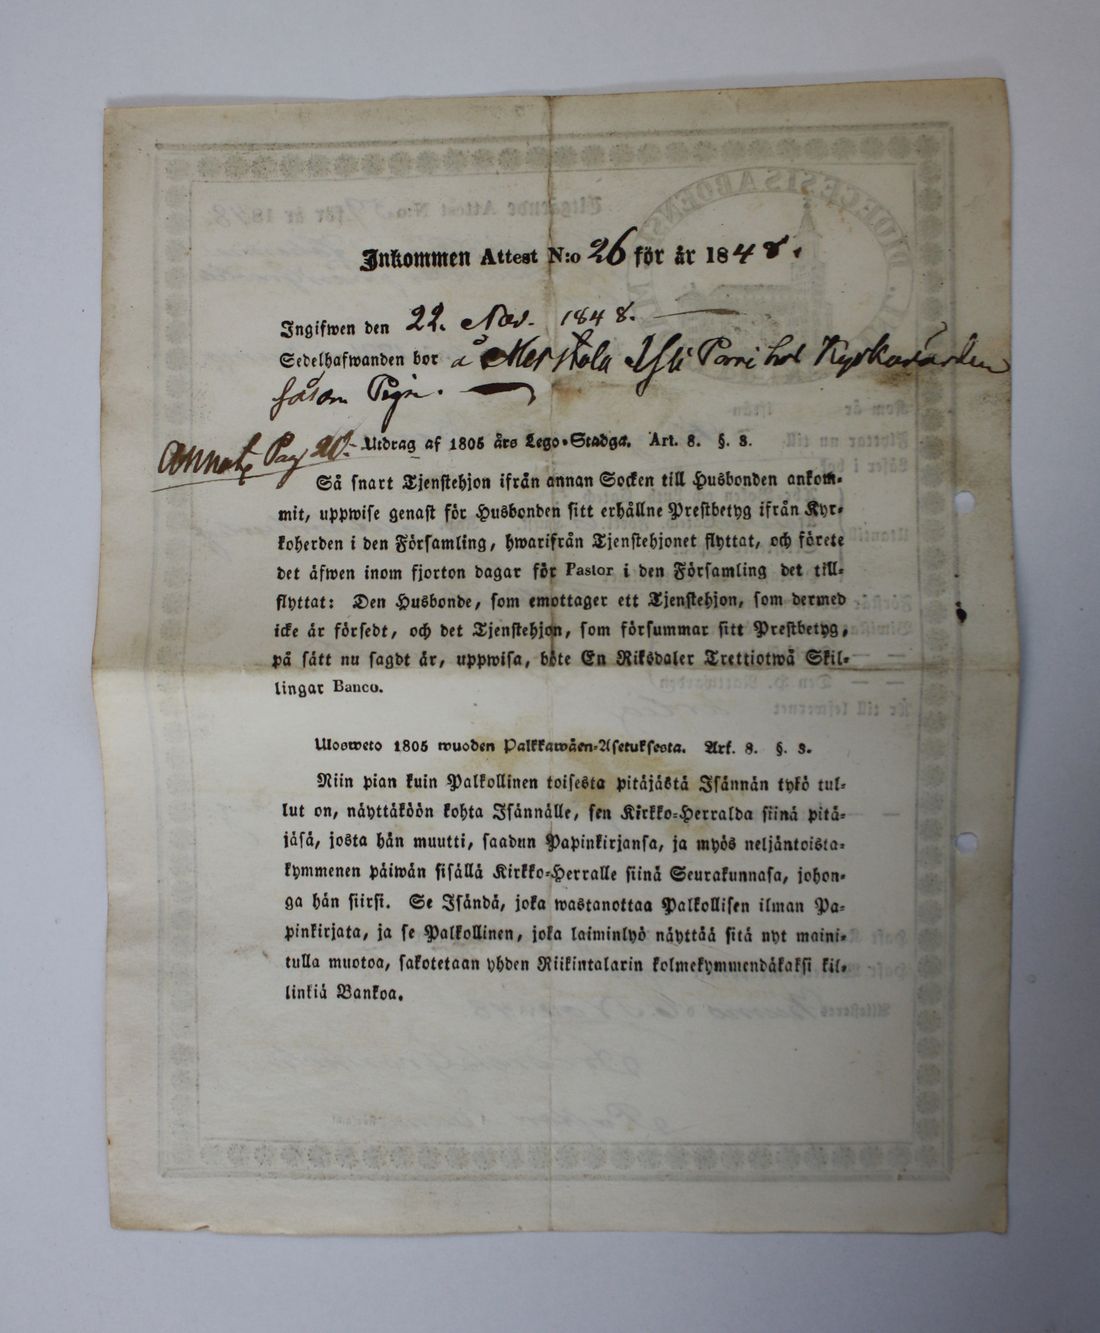 Inkommen Attest N:o 26 för år 1848.
Ingifwen den 22. Nov. 1848.
Sedelhafwanden bor å
såsom Piga.
Annot. Pag
Utdrag af 1805 års Lego-Stadga. Art. 8. §. 3.
Så snart Tjenstehjon ifrån annan Socken till Husbonden ankom-
mit, uppwise genast för Husbonden sitt erhållne Prestbetyg ifrån Kyr-
koherden i den Församling, hwarifrån Tjenstehjonet flyttat, och förete
det äfwen inom fjorton dagar för Pastor i den Församling det till-
flyttat: Den Husbonde, som emottager ett Tjenstehjon, som dermed
icke är försedt, och det Tjenstehjon, som försummar sitt Prestbetyg,
på sätt nu sagdt är, uppwisa, böte En Riksdaler Trettiotwå Skil-
lingar Banco.
Ulosweto 1805 wuoden Palkkawäen-Asetuksesta. Art. 8. §. 3.
Niin pian kuin Palkollinen toisesta pitäjästä Isännän tykö tul-
lut on, näyttäköön kohta Isännälle, sen Kirkko-Herralda siinä pitä-
jäsä, josta hän muutti, saadun Papinkirjansa, ja myös neljäntoista-
kymmenen päiwän sisällä Kirkko-Herralle siinä Seurakunnasa, johon-
ga hän siirsi. Se Isändä, joka wastanottaa Palkollisen ilman Pa-
pinkirjata, ja se Palkollinen, joka laiminlyö näyttää sitä nyt maini-
tulla muotoa, sakotetaan yhden Riikintalarin kolmekymmendäkaksi kil-
linkiä Bankoa.